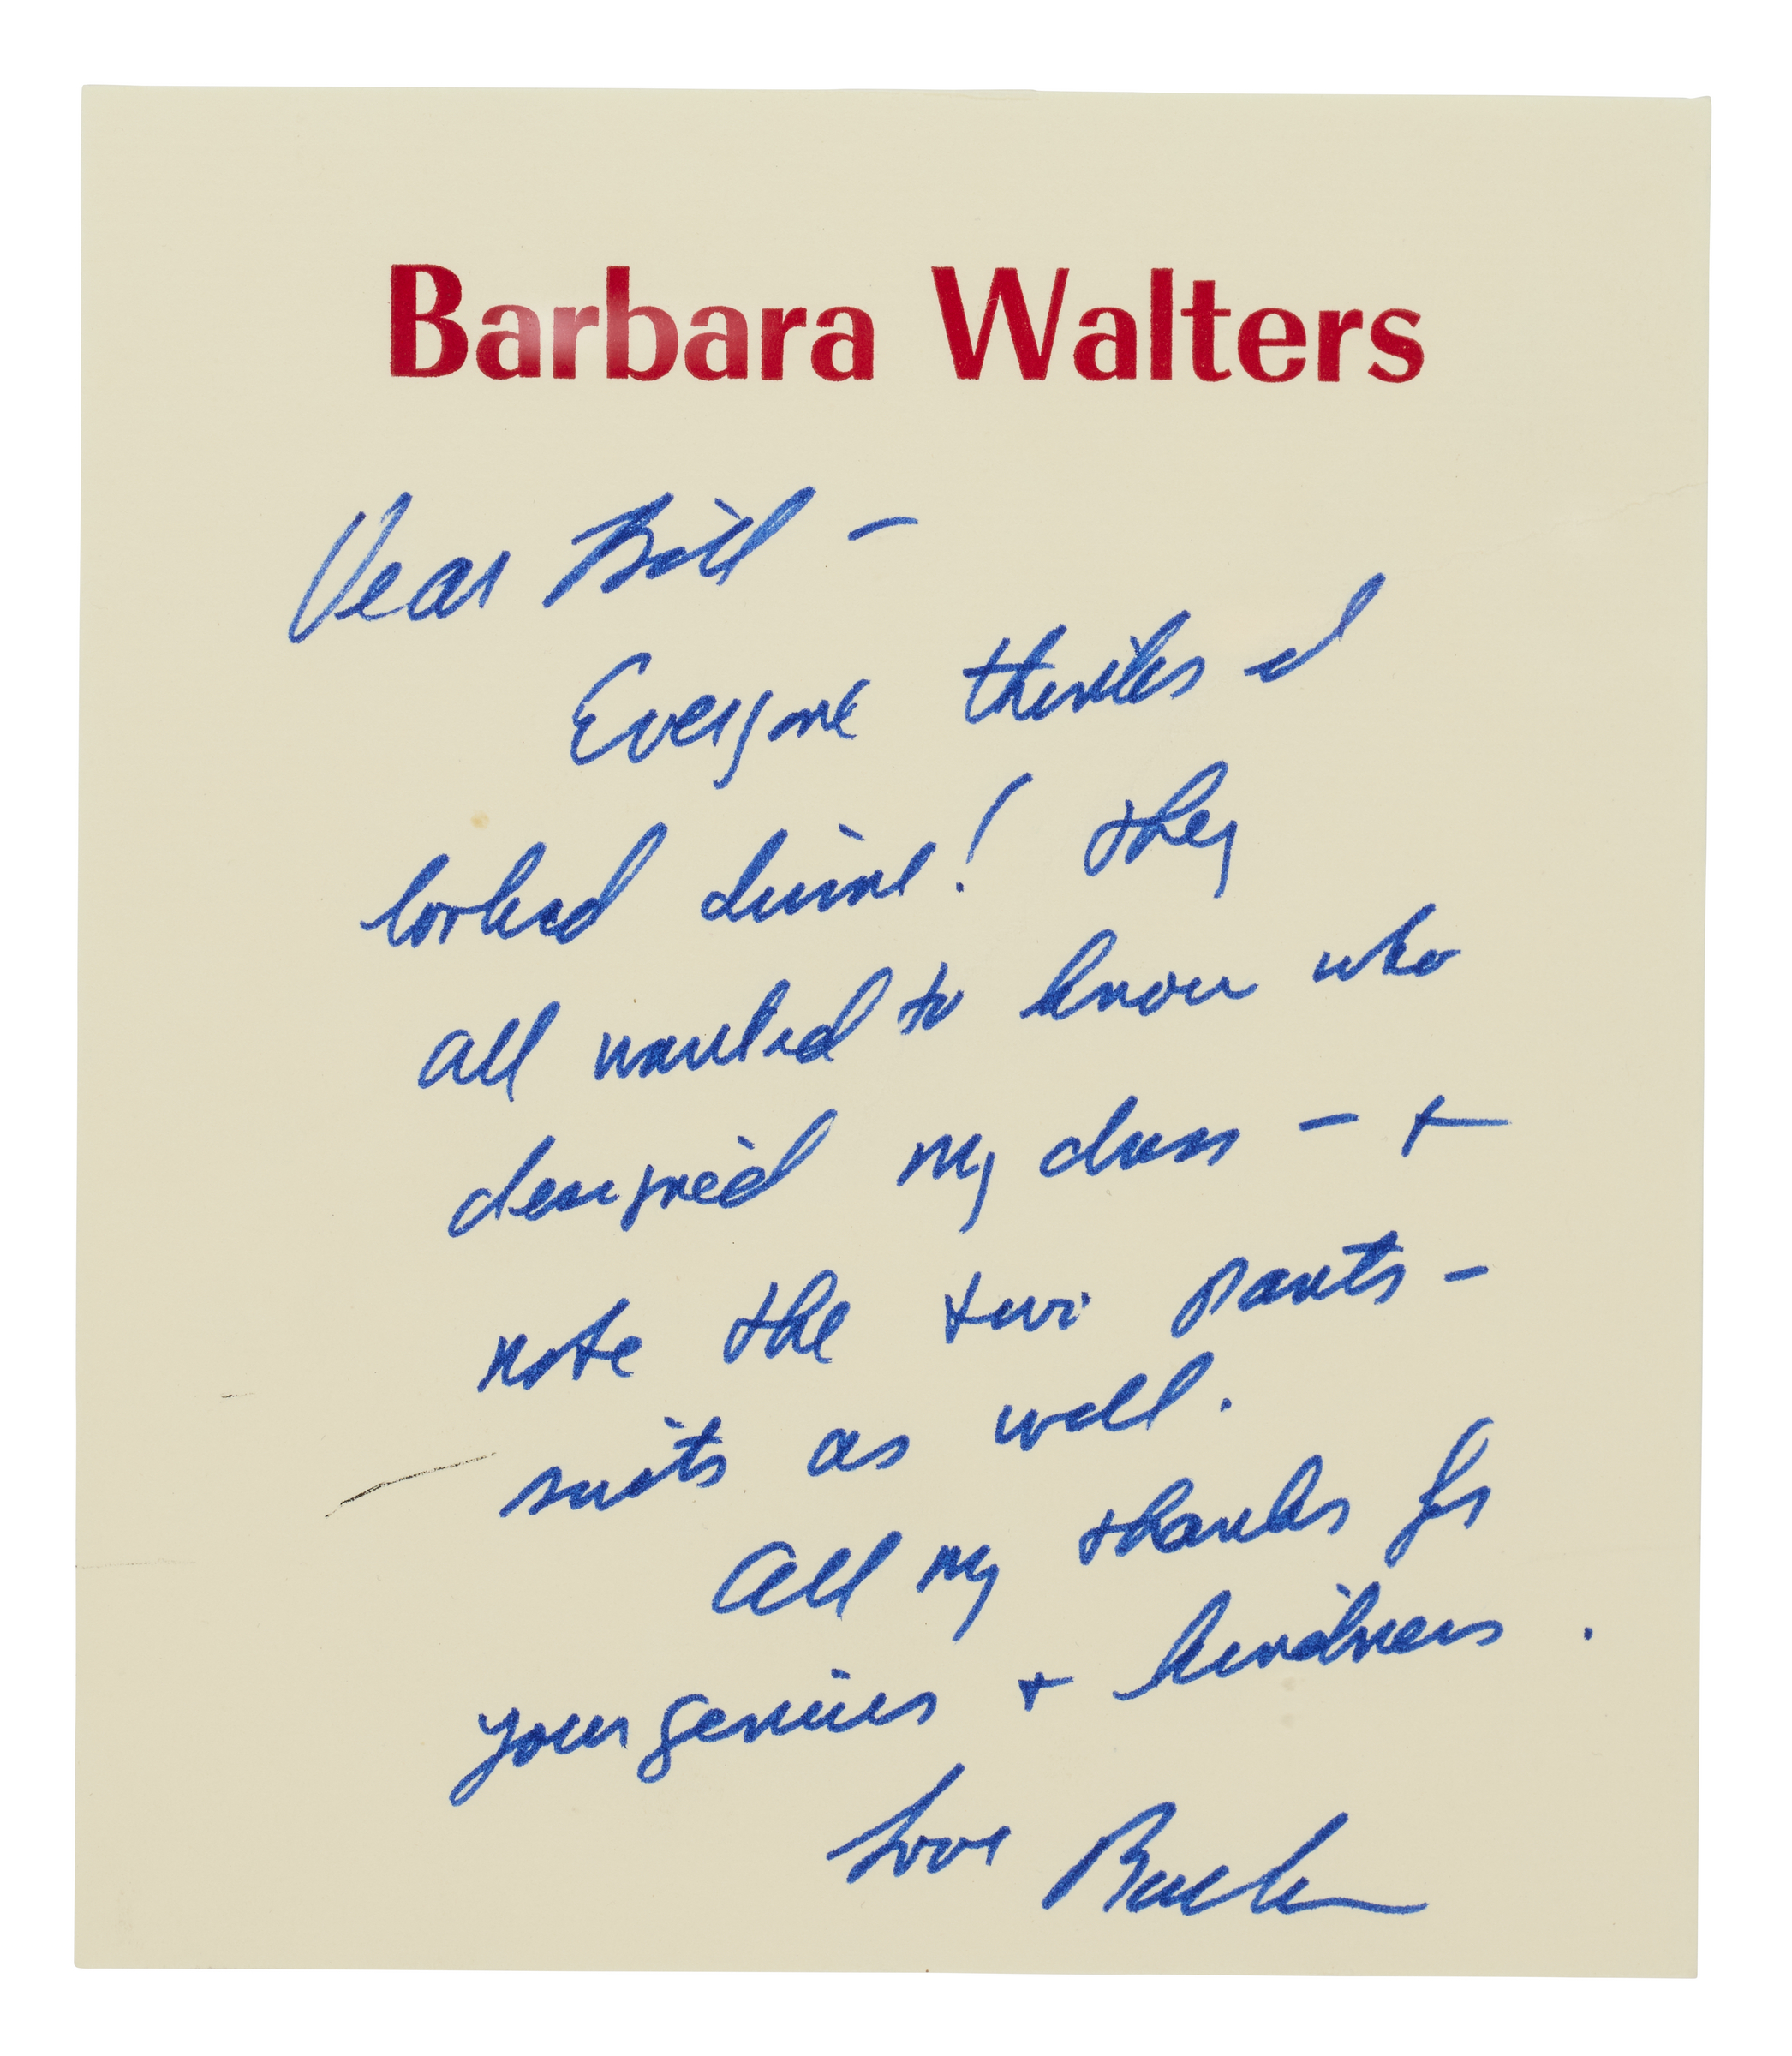 Barbara Walters
Dear Bill –
Everyone thinks I
looked divine! They
all wanted to know who
designed my dress – +
note the two pants –
suits as well.
All my thanks for
your genius + kindness.
Love Barbara